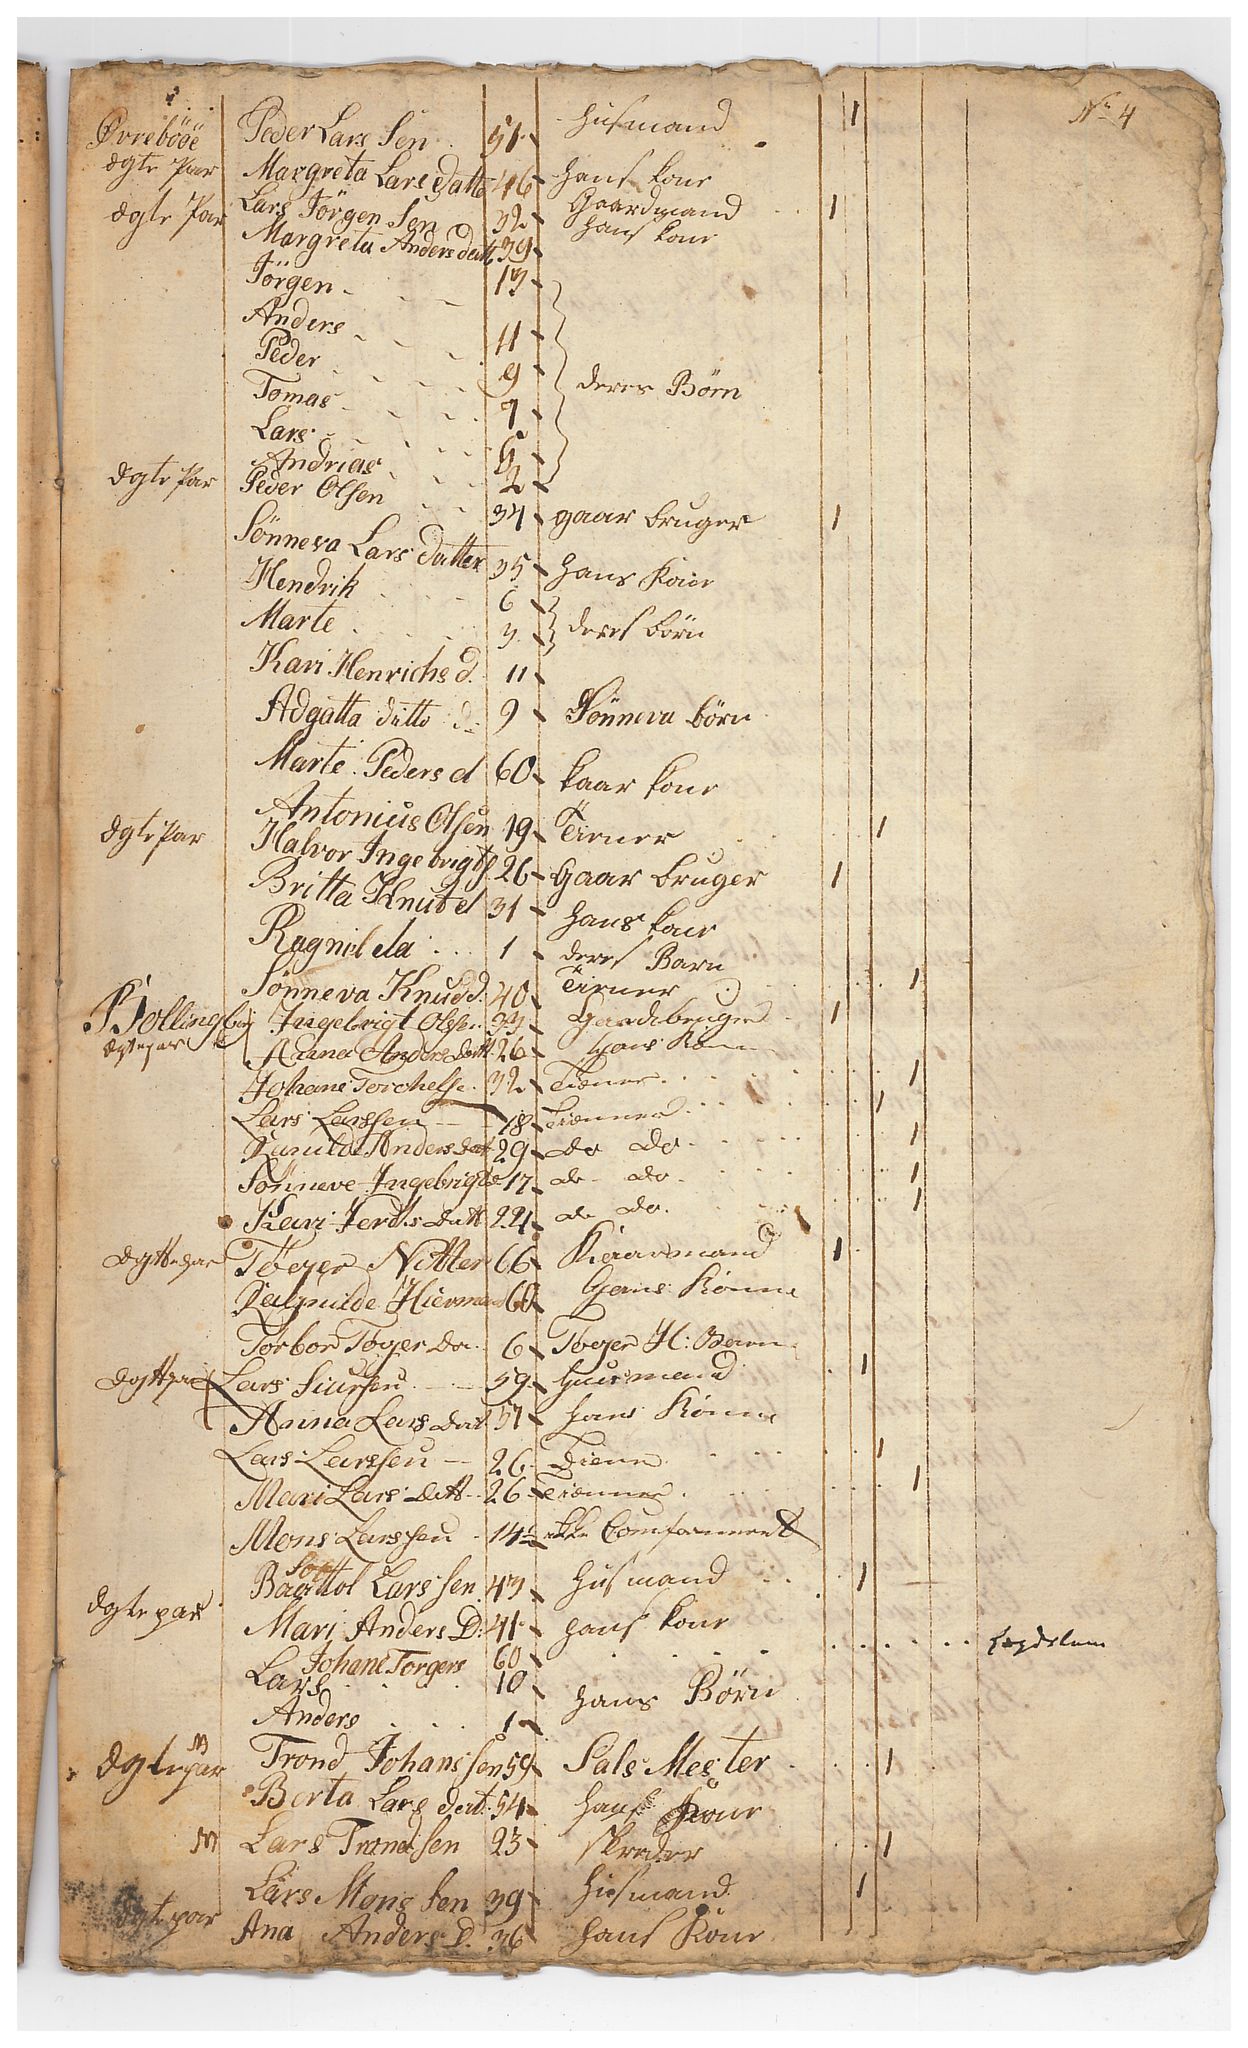 No 4
Øvrebøe Peder Lars Sen 51 husmand 1
Ægte Par Margreta Lars Datter 46 hans kone
Ægte Par Lars Jörgen Sen 32 Gaardmand 1
Margreta Anders datt 39 hans kone
Jörgen 13
Anders 11
Peder 9 deres Börn
Tomas 7
Lars
Andrias 2
Ægte Par Peder Olsen 34 gaar bruger 1
Sönneva Lars Datter 35 hans kone
Hendrik 6
Marte 3 deres börn
Kari Henrichs d. 11
Adgatta ditto d 9 Sönneva börn
Marte Peders d 60 kaar kone
Antonius Olsen 19 Tiener 1
Ægte Par Halvor Ingebrigts 26 Gaar bruger 1
Britta Knut d 31 hans kone
Ragnilda 1 deres Barn
Sönneva Knud d. 40 Tiener 1
Bollingbøj Ingebrigt Olsen 33 Gardbruger 1
Ægtepar Anna Anders datt 26 hans Kone
Johane Torchels 32 Tiener 1
Lars Larssen 18 Tienner 1
Anders datt 29 do do 1
Sönneve Ingebrigts 17 do do 1
Kari datt 22 do do 1
Ægtepar Tøger Nitter 66 Kaarmand 1
60 Hans Könne
Torbor Tøger da 6 Tøger N: Barn
Ægtpar Lars Siursen 59 Huusmand 1
Anna Lars dat 57 hans Könne
Lars Larssen 26 Tiene 1
Mari Lars datt 26 Tienner 1
Mons Larssen 14½ ikke Comfarmeret
Bagttol Lars Sen 43 husmand 1
Ægte par Mari Anders D: 41 hans kone
Johane Torgers 60 Lægdslem
Lars 10 hans Börn
Anders 1
Ægtepar Trond Johans Sen 59 Sals Mester 1
Berta Lars dat 54 hans Kone
Lars Trond Sen 23 skreder 1
Lars Mons Sen 39 husmand 1
Ægte par Ana Anders D. 36 hans Kone